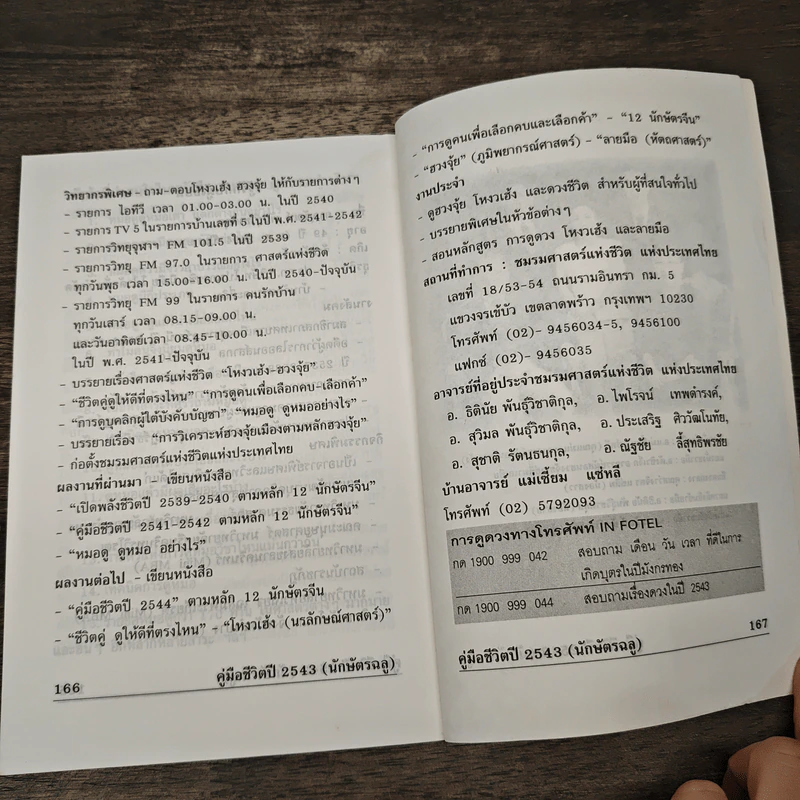 วิทยากรพิเศษ - ถาม-ตอบโหงวเฮ้ง ฮวงจุ้ย ให้กับรายการต่างๆ
- รายการ ไอทีวี เวลา 01.00-03.00 น. ในปี 2540
- รายการ TV 5 ในรายการบ้านเลขที่ 5 ในปี พ.ศ. 2541-2542
- รายการวิทยุจุฬาฯ FM 101.5 ในปี 2539
- รายการวิทยุ FM 97.0 ในรายการ ศาสตร์แห่งชีวิต
ทุกวันพุธ เวลา 15.00-16.00 น. ในปี 2540-ปัจจุบัน
- รายการวิทยุ FM 99 ในรายการ คนรักบ้าน
ทุกวันเสาร์ เวลา 08.15-09.00 น.
และวันอาทิตย์เวลา 08.45-10.00 น.
ในปี พ.ศ. 2541-ปัจจุบัน
- บรรยายเรื่องศาสตร์แห่งชีวิต "โหงวเฮ้ง-ฮวงจุ้ย"
- "ชีวิตคู่ดูให้ดีที่ตรงไหน" "การดูคนเพื่อเลือกคบ-เลือกค้า"
- "การดูบุคลิกผู้ใต้บังคับบัญชา" "หมอดู ดูหมออย่างไร"
- บรรยายเรื่อง "การวิเคราะห์ฮวงจุ้ยเมืองตามหลักฮวงจุ้ย"
- ก่อตั้งชมรมศาสตร์แห่งชีวิตแห่งประเทศไทย
ผลงานที่ผ่านมา - เขียนหนังสือ
- "เปิดพลังชีวิตปี 2539-2540 ตามหลัก 12 นักษัตรจีน"
- "คู่มือชีวิตปี 2541-2542 ตามหลัก 12 นักษัตรจีน"
- "หมอดู ดูหมอ อย่างไร"
ผลงานต่อไป - เขียนหนังสือ
- "คู่มือชีวิตปี 2544" ตามหลัก 12 นักษัตรจีน
- "ชีวิตคู่ ดูให้ดีที่ตรงไหน" - "โหงวเฮ้ง (นรลักษณ์ศาสตร์)"
166 คู่มือชีวิตปี 2543 (นักษัตรฉลู)
- "การดูคนเพื่อเลือกคบและเลือกค้า" - "12 นักษัตรจีน"
- "ฮวงจุ้ย" (ภูมิพยากรณ์ศาสตร์) - "ลายมือ (หัตถศาสตร์)"
งานประจำ
- ดูฮวงจุ้ย โหงวเฮ้ง และดวงชีวิต สำหรับผู้ที่สนใจทั่วไป
- บรรยายพิเศษในหัวข้อต่างๆ
- สอนหลักสูตร การดูดวง โหงวเฮ้ง และลายมือ
สถานที่ทำการ : ชมรมศาสตร์แห่งชีวิต แห่งประเทศไทย
เลขที่ 18/53-54 ถนนรามอินทรา กม. 5
แขวงจรเข้บัว เขตลาดพร้าว กรุงเทพฯ 10230
โทรศัพท์ (02)- 9456034-5, 9456100
แฟกซ์ (02)- 9456035
อาจารย์ที่อยู่ประจำชมรมศาสตร์แห่งชีวิต แห่งประเทศไทย
อ. ธิตินัย พันธุ์วิชาติกุล, อ. ไพโรจน์ เทพดำรงค์,
อ. สุวิมล พันธุ์วิชาติกุล, อ. ประเสริฐ ศิววัฒโนทัย,
อ. สุชาติ รัตนธนกุล, อ. ณัฐชัย ลี้สุทธิพรชัย
บ้านอาจารย์ แม่เซี้ยม แซ่หลี
โทรศัพท์ (02) 5792093
การดูดวงทางโทรศัพท์ IN FOTEL
กด 1900 999 042 สอบถาม เดือน วัน เวลา ที่ดีในการ
เกิดบุตรในปีมังกรทอง
กด 1900 999 044 สอบถามเรื่องดวงในปี 2543
คู่มือชีวิตปี 2543 (นักษัตรฉลู) 167